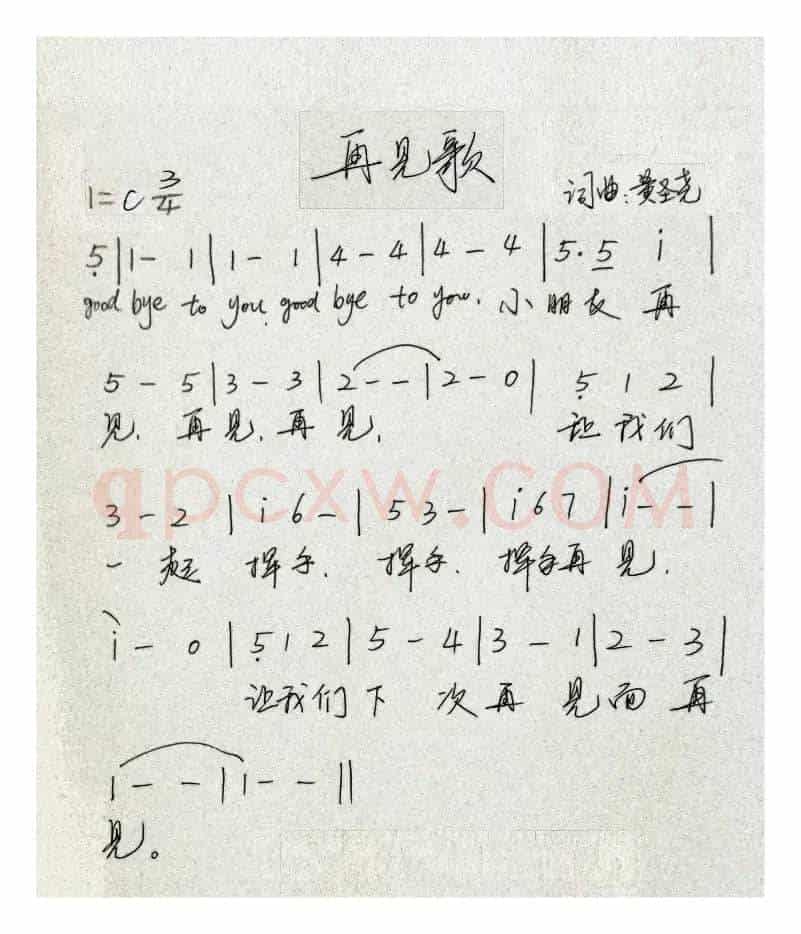 再见歌
1=C 3/4
词曲:黄圣尧
5̣|1- 1|1- 1|4-4|4-4|5·5̲ i|
good bye to you, good bye to you. 小朋友 再
5-5|3-3|2--|2-0| 5̣ 1 2|
见. 再见. 再见. 让我们
3-2|i 6-|5 3-|i 6 7|i--|
一起 挥手. 挥手. 挥手再见.
i-0|5̣ 1 2|5-4|3-1|2-3|
让我们下 次再见面再
1--|1--||
见。
qpcxw.COM